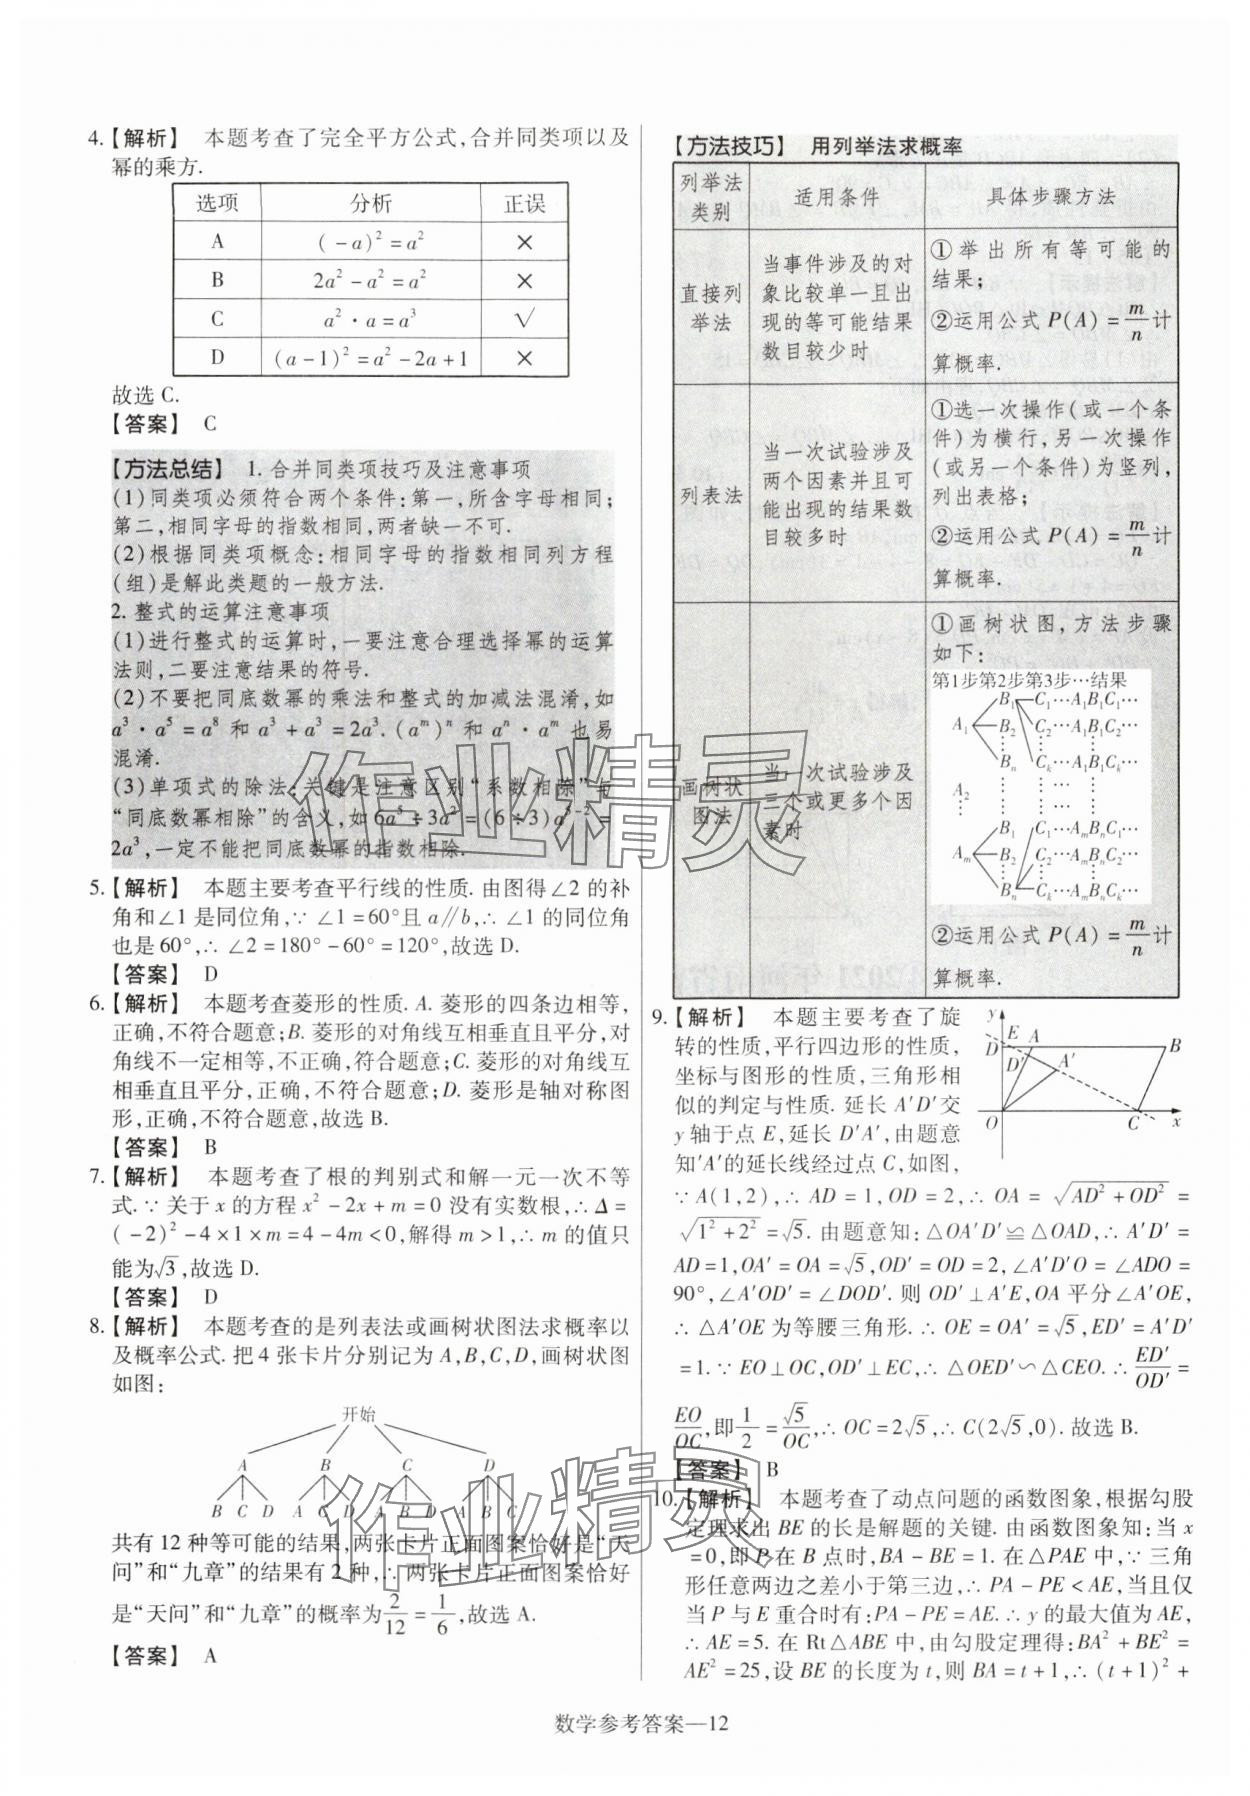 4.【解析】 本题考查了完全平方公式,合并同类项以及
幂的乘方.
选项 分析 正误
A (-a)²=a² ×
B 2a²-a²=a² ×
C a²·a=a³ √
D (a-1)²=a²-2a+1 ×
故选 C.
【答案】 C
【方法总结】 1. 合并同类项技巧及注意事项
(1)同类项必须符合两个条件:第一,所含字母相同;
第二,相同字母的指数相同,两者缺一不可.
(2)根据同类项概念:相同字母的指数相同列方程
(组)是解此类题的一般方法.
2. 整式的运算注意事项
(1)进行整式的运算时,一要注意合理选择幂的运算
法则,二要注意结果的符号.
(2)不要把同底数幂的乘法和整式的加减法混淆,如
a³·a⁵=a⁸ 和 a³+a³=2a³. (aᵐ)ⁿ 和 aⁿ·aᵐ 也易
混淆.
(3)单项式的除法:关键是注意区别“系数相除”与
“同底数幂相除”的含义,如 6a⁵÷3a²=(6÷3)a⁵⁻²=
2a³,一定不能把同底数幂的指数相除.
5.【解析】 本题主要考查平行线的性质. 由图得∠2 的补
角和∠1 是同位角,∵∠1=60°且 a∥b,∴∠1 的同位角
也是 60°,∴∠2=180°-60°=120°,故选 D.
【答案】 D
6.【解析】 本题考查菱形的性质. A. 菱形的四条边相等,
正确,不符合题意;B. 菱形的对角线互相垂直且平分,对
角线不一定相等,不正确,符合题意;C. 菱形的对角线互
相垂直且平分,正确,不符合题意;D. 菱形是轴对称图
形,正确,不符合题意,故选 B.
【答案】 B
7.【解析】 本题考查了根的判别式和解一元一次不等
式.∵关于 x 的方程 x²-2x+m=0 没有实数根,∴Δ=
(-2)²-4×1×m=4-4m<0,解得 m>1,∴m 的值只
能为√3,故选 D.
【答案】 D
8.【解析】 本题考查的是列表法或画树状图法求概率以
及概率公式. 把 4 张卡片分别记为 A,B,C,D,画树状图
如图:
开始
A B C D
B C D A C D A B D A B C
共有 12 种等可能的结果,两张卡片正面图案恰好是“天
问”和“九章”的结果有 2 种,∴两张卡片正面图案恰好
是“天问”和“九章”的概率为 2/12=1/6,故选 A.
【答案】 A
【方法技巧】 用列举法求概率
列举法类别 适用条件 具体步骤方法
直接列举法
当事件涉及的对
象比较单一且出
现的等可能结果
数目较少时
①举出所有等可能的
结果;
②运用公式 P(A)=m/n 计
算概率.
列表法
当一次试验涉及
两个因素并且可
能出现的结果数
目较多时
①选一次操作(或一个条
件)为横行,另一次操作
(或另一个条件)为竖列,
列出表格;
②运用公式 P(A)=m/n 计
算概率.
画树状图法
当一次试验涉及
三个或更多个因
素时
①画树状图,方法步骤
如下:
第1步第2步第3步…结果
B₁ C₁…A₁B₁C₁…
A₁ B₂ C₂…A₁B₁C₂…
⋮ ⋮ ⋮
Bₙ Cₖ…A₁B₁Cₖ…
A₂ ⋮ ⋮
⋮
B₁ C₁…AₘBₙC₁…
Aₘ B₂ C₂…AₘBₙC₂…
⋮ ⋮ ⋮
Bₙ Cₖ…AₘBₙCₖ…
②运用公式 P(A)=m/n 计
算概率.
9.【解析】 本题主要考查了旋
转的性质,平行四边形的性质,
坐标与图形的性质,三角形相
似的判定与性质. 延长 A′D′交
y 轴于点 E,延长 D′A′,由题意
知′A′的延长线经过点 C,如图,
y E A B
D D′ A′
O C x
∵A(1,2),∴AD=1,OD=2,∴OA=√(AD²+OD²)=
√(1²+2²)=√5. 由题意知:△OA′D′≌△OAD,∴A′D′=
AD=1,OA′=OA=√5,OD′=OD=2,∠A′D′O=∠ADO=
90°,∠A′OD′=∠DOD′. 则 OD′⊥A′E,OA 平分∠A′OE,
∴△A′OE 为等腰三角形.∴OE=OA′=√5,ED′=A′D′
=1.∵EO⊥OC,OD′⊥EC,∴△OED′∽△CEO.∴ED′/OD′=
EO/OC,即 1/2=√5/OC,∴OC=2√5,∴C(2√5,0). 故选 B.
【答案】 B
10.【解析】 本题考查了动点问题的函数图象,根据勾股
定理求出 BE 的长是解题的关键. 由函数图象知:当 x
=0,即 P 在 B 点时,BA-BE=1. 在△PAE 中,∵三角
形任意两边之差小于第三边,∴PA-PE<AE,当且仅
当 P 与 E 重合时有:PA-PE=AE.∴y 的最大值为 AE,
∴AE=5. 在 Rt△ABE 中,由勾股定理得:BA²+BE²=
AE²=25,设 BE 的长度为 t,则 BA=t+1,∴(t+1)²+
数学参考答案—12
作业精灵
作业精灵